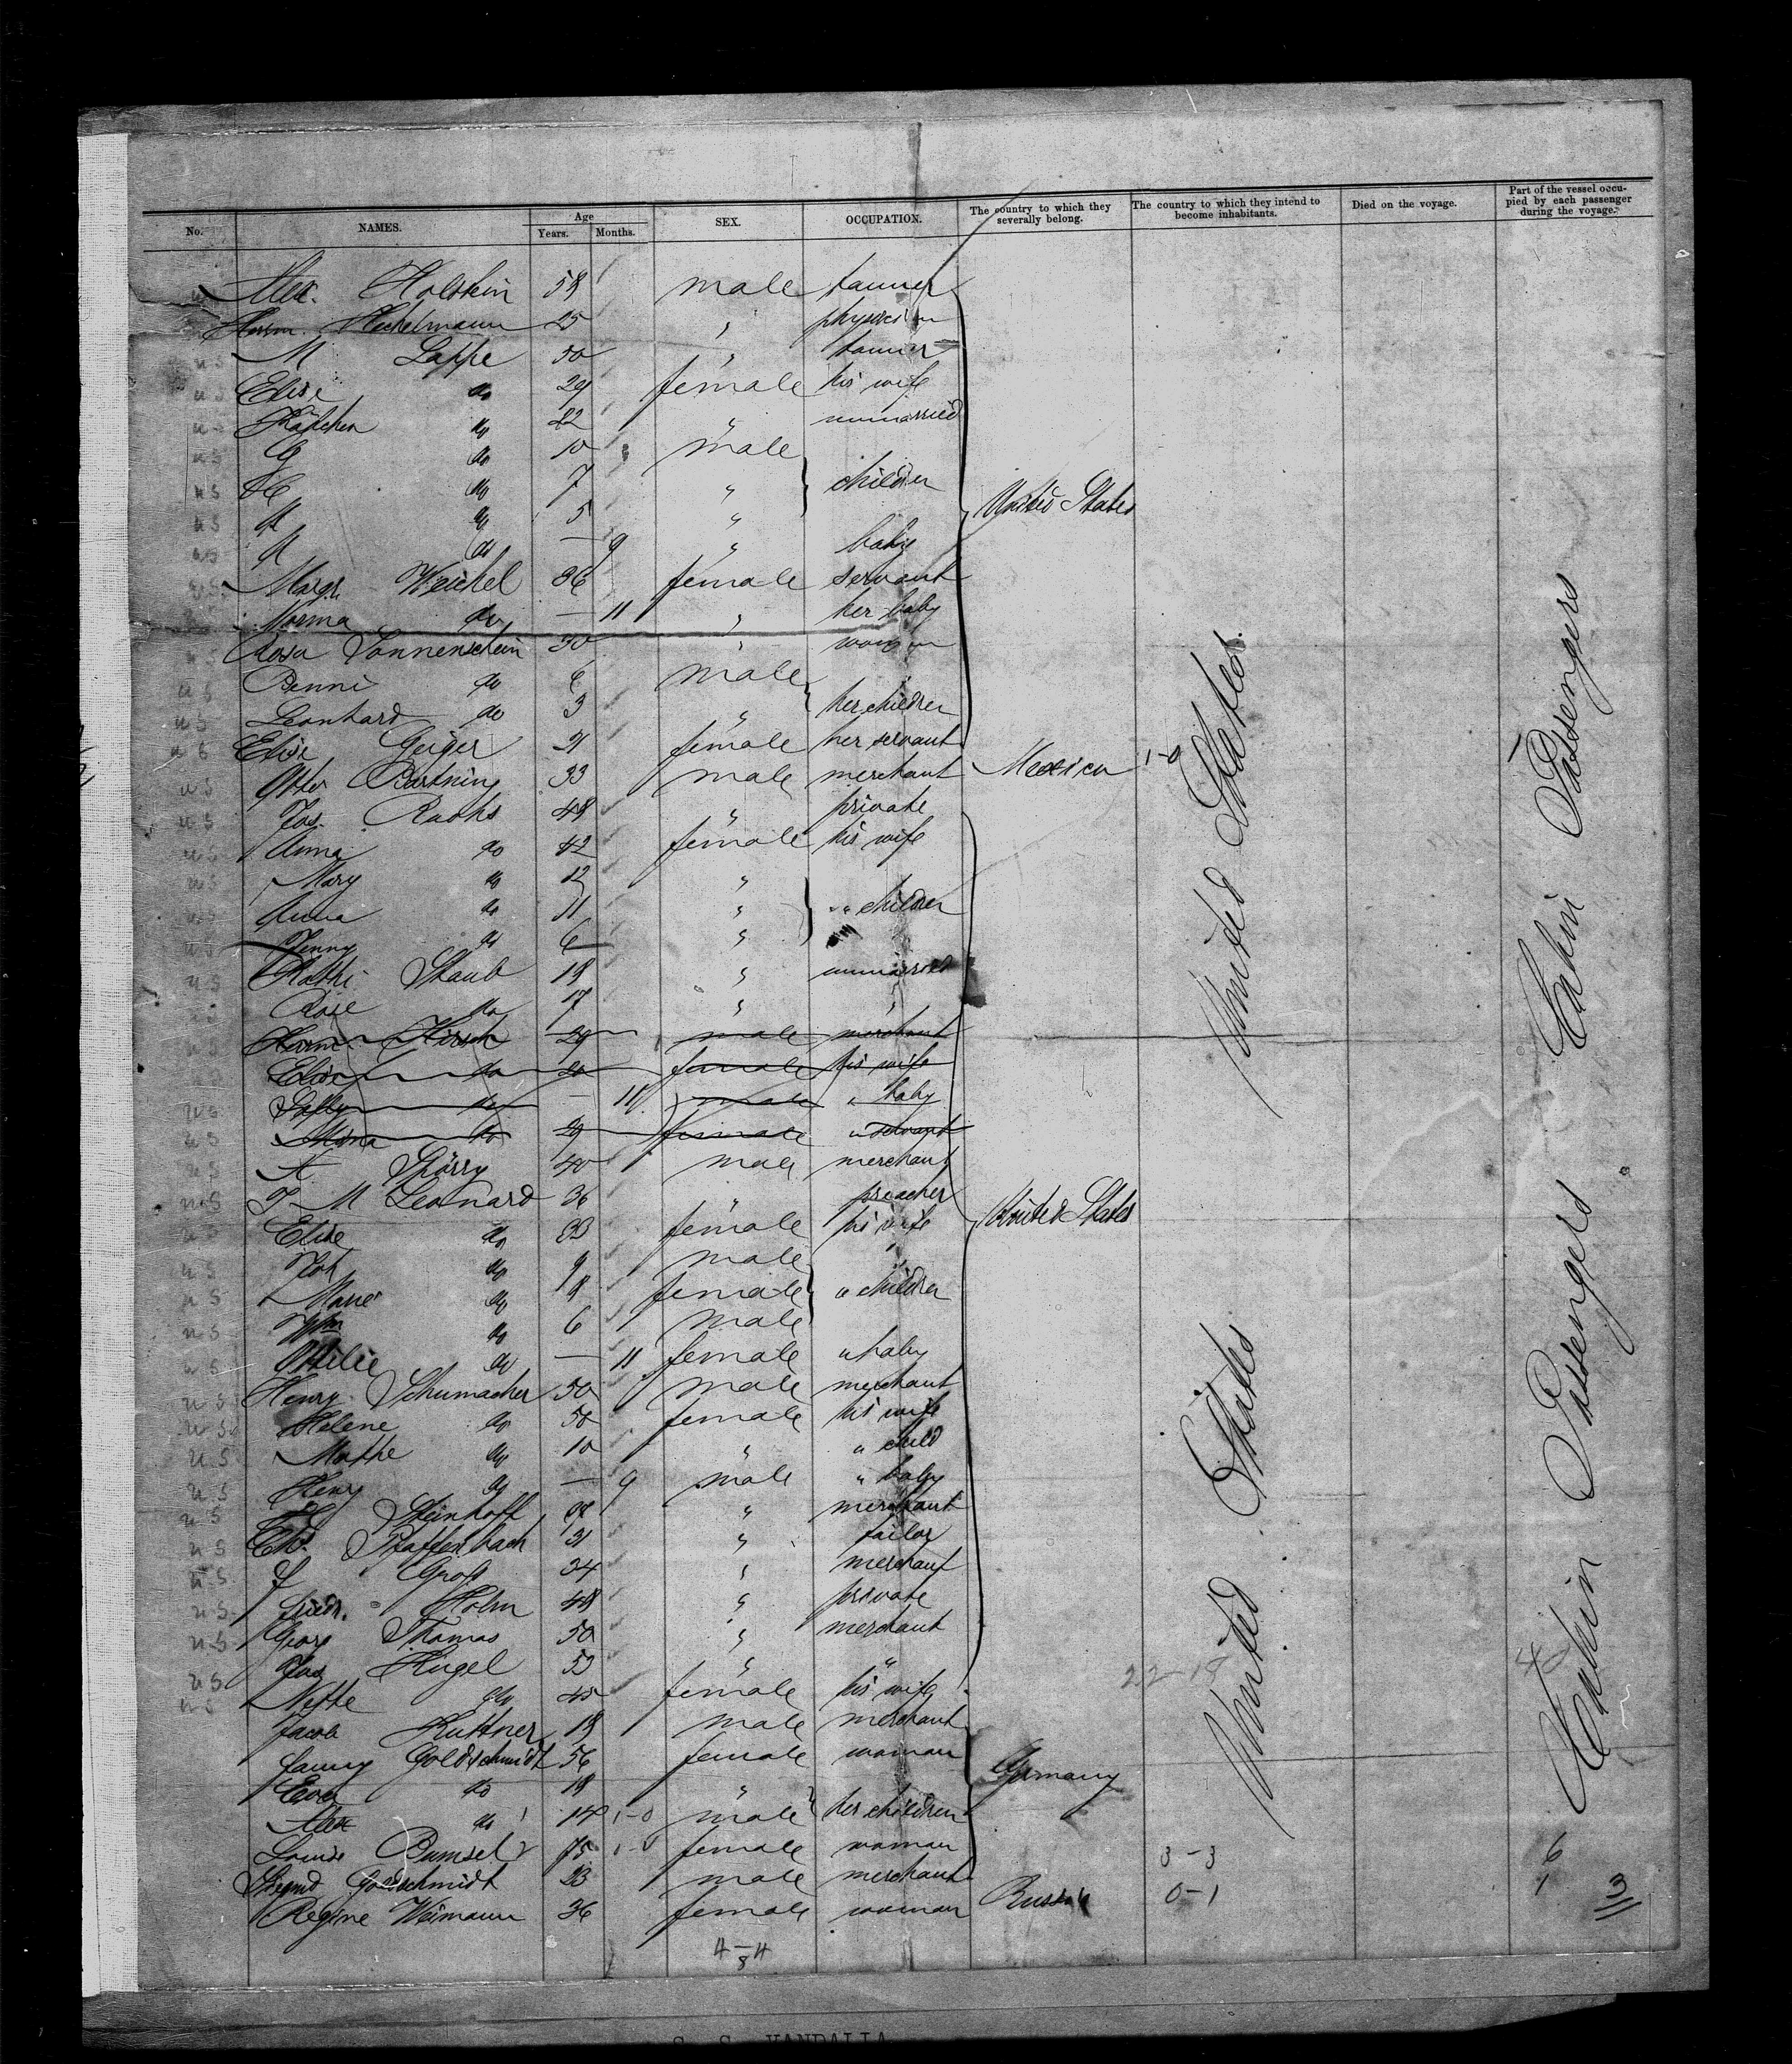 No. NAMES. Age Years. Months. SEX. OCCUPATION. The country to which they severally belong. The country to which they intend to become inhabitants. Died on the voyage. Part of the vessel occupied by each passenger during the voyage.
Alex. Holstein 58 male tanner
Herm. Hechelmann 25 " physician
M Lappe 50 " tanner
Elise do 29 female his wife
Käthchen do 22 " unmarried
G do 10 male
H do 7 " children United States
A do 5 "
A do — 9 " baby
Margr. Weichel 36 female servant
Norma do — 11 " her baby
Rosa Sonnenschein 30 " woman
Benni do 6 male
Leonhard do 3 " her children
Elise Geiger 21 female her servant
Otto Bartning 33 male merchant Mexico 1-0
Jos. Raohs 48 " private
Anna do 42 female his wife
Mary do 12 "
Anna do 11 " " children
Jenny do 6 "
Kathi Staub 18 " unmarried
Rose do 17 " "
Herm. Hirsch 29 male merchant
Elise do 20 female his wife
Sally do — 11 male " baby
Mina do 29 female " servant
A Spörry 40 male merchant
T M Leonard 36 " preacher
Elise do 33 female his wife United States
Joh do 9 male
Marie do 8 female " children
Wm do 6 male
Ottilie do — 11 female " baby
Henry Schumacher 50 male merchant
Helene do 50 female his wife
Mathe do 10 " " child
Henry do — 9 male " baby
Steinhoff " merchant
Ed. Pfaffenbach 31 " tailor
Gross 34 " merchant
Friedr. Holm 48 " private
Georg Thomas 50 " merchant
Jos Hugel 53 " "
Nette do 45 female his wife 22-18
Jacob Huttner 18 male merchant
Fanny Goldschmidt 56 female woman
Eva do 18 " Germany
Alex do 14 1-0 male her children
Louise Bumsel 75 1-0 female woman 3-3 6
Siegmd Goldschmidt 23 male merchant
Regine Weimann 36 female woman Russia 0-1 1 3
4-4
8
United States.
United States
Cabin Passengers
Cabin Passengers
S. S. VANDALIA